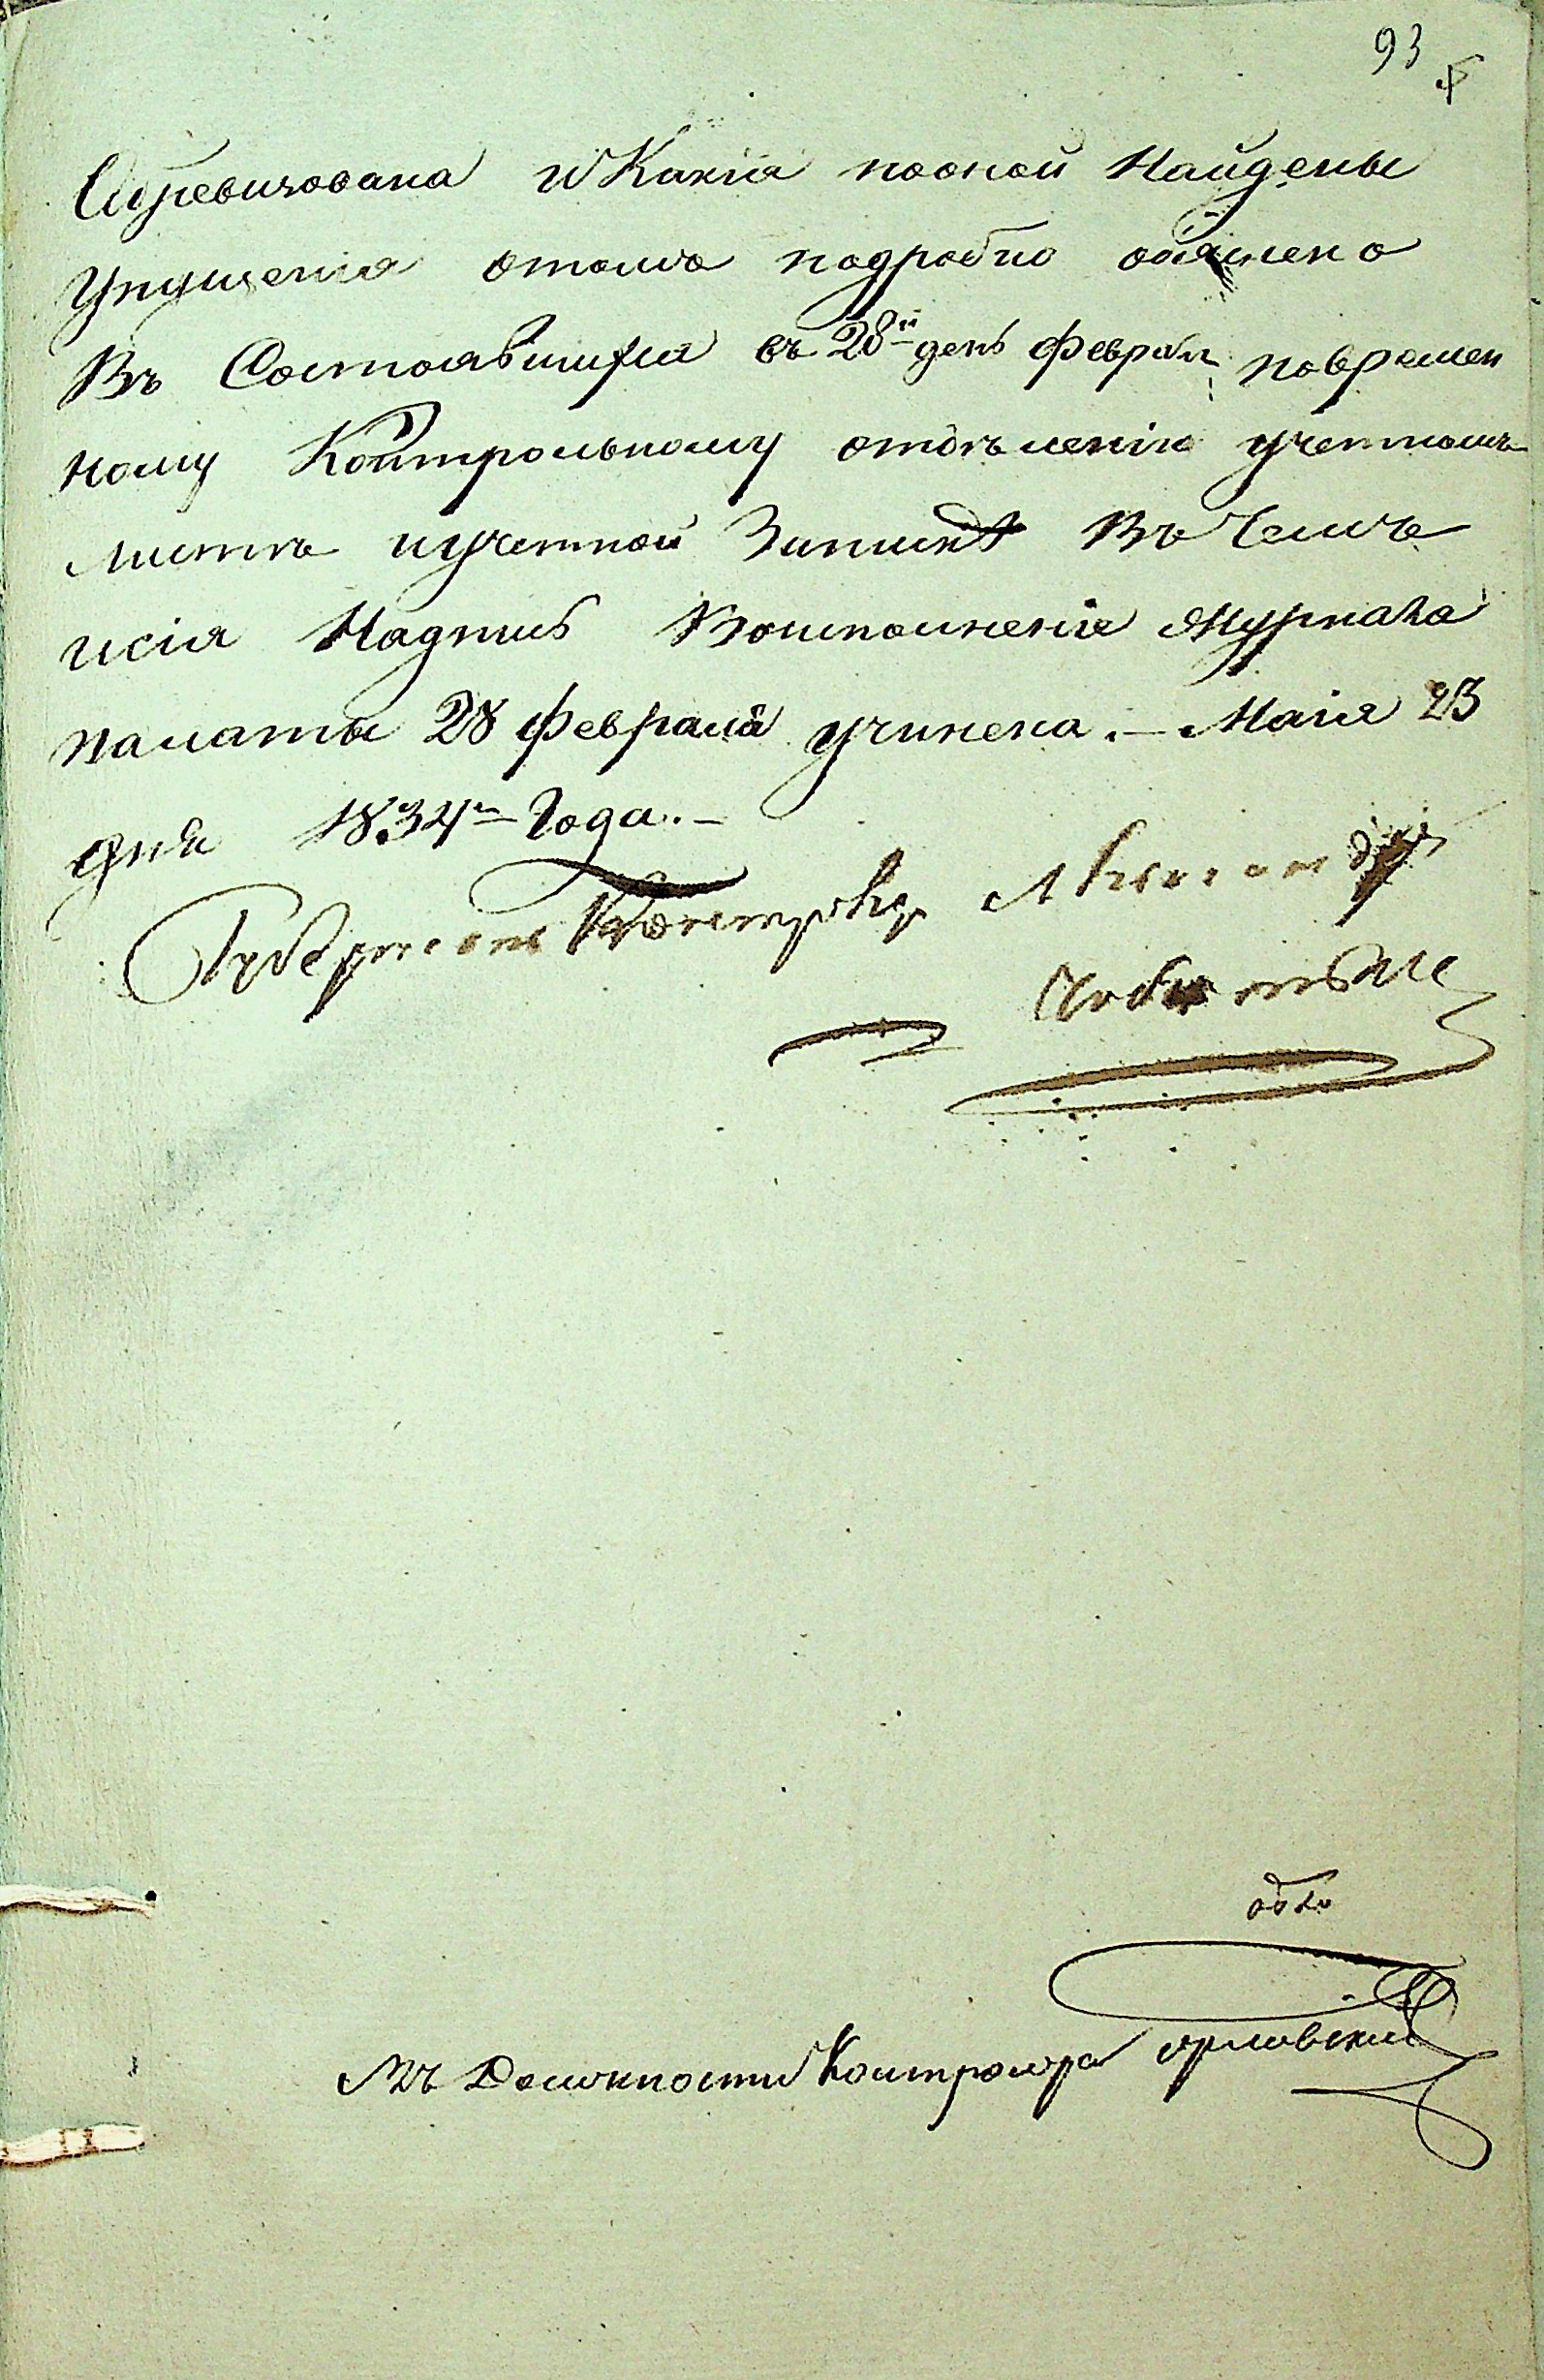 93
Обревизована и Какiя пооной Найдены
упущенiя отомъ подробно обяснено
Въ Состоявшихся въ 28й день февраля повремен
ному Контрольному отдѣленiю учетномъ
листѣ иучетной Запискѣ Въ Чемъ
исiя Надпись Воисполненiе Журнала
палаты 28 февраля учинена. — Маiя 23
дня 1834го Года. —
Губернскiй Контролер Александр
Въ Должности Контролера Орловский